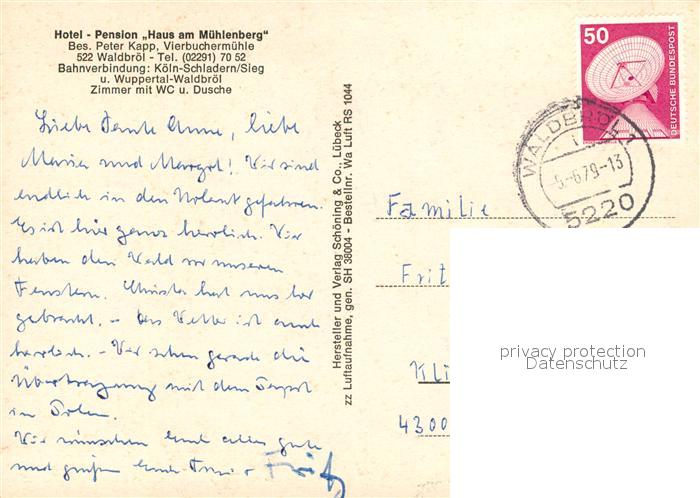 Hotel - Pension „Haus am Mühlenberg“
Bes. Peter Kapp, Vierbuchermühle
522 Waldbröl - Tel. (02291) 70 52
Bahnverbindung: Köln-Schladern/Sieg
u. Wuppertal-Waldbröl
Zimmer mit WC u. Dusche
Liebe Tante Anne, liebe
Maria und Margot! Wir sind
endlich in den Urlaub gefahren.
Es ist hier ganz herrlich. Wir
haben den Wald vor unseren
Fenstern. Christa hat uns her
gebracht. - Das Wetter ist auch
herrlich. - Wir sehen gerade die
Übertragung mit dem Papst
in Polen.
Wir wünschen Euch alles gute
und grüßen Euch Fritz
Hersteller und Verlag Schöning & Co., Lübeck
zz Luftaufnahme, gen. SH 38004 - Bestellnr. Wa Luft RS 1044
50
DEUTSCHE BUNDESPOST
WALDBRÖL 1
5.-6.79-13
5220
Familie
Frit
Kli
4300
privacy protection
Datenschutz